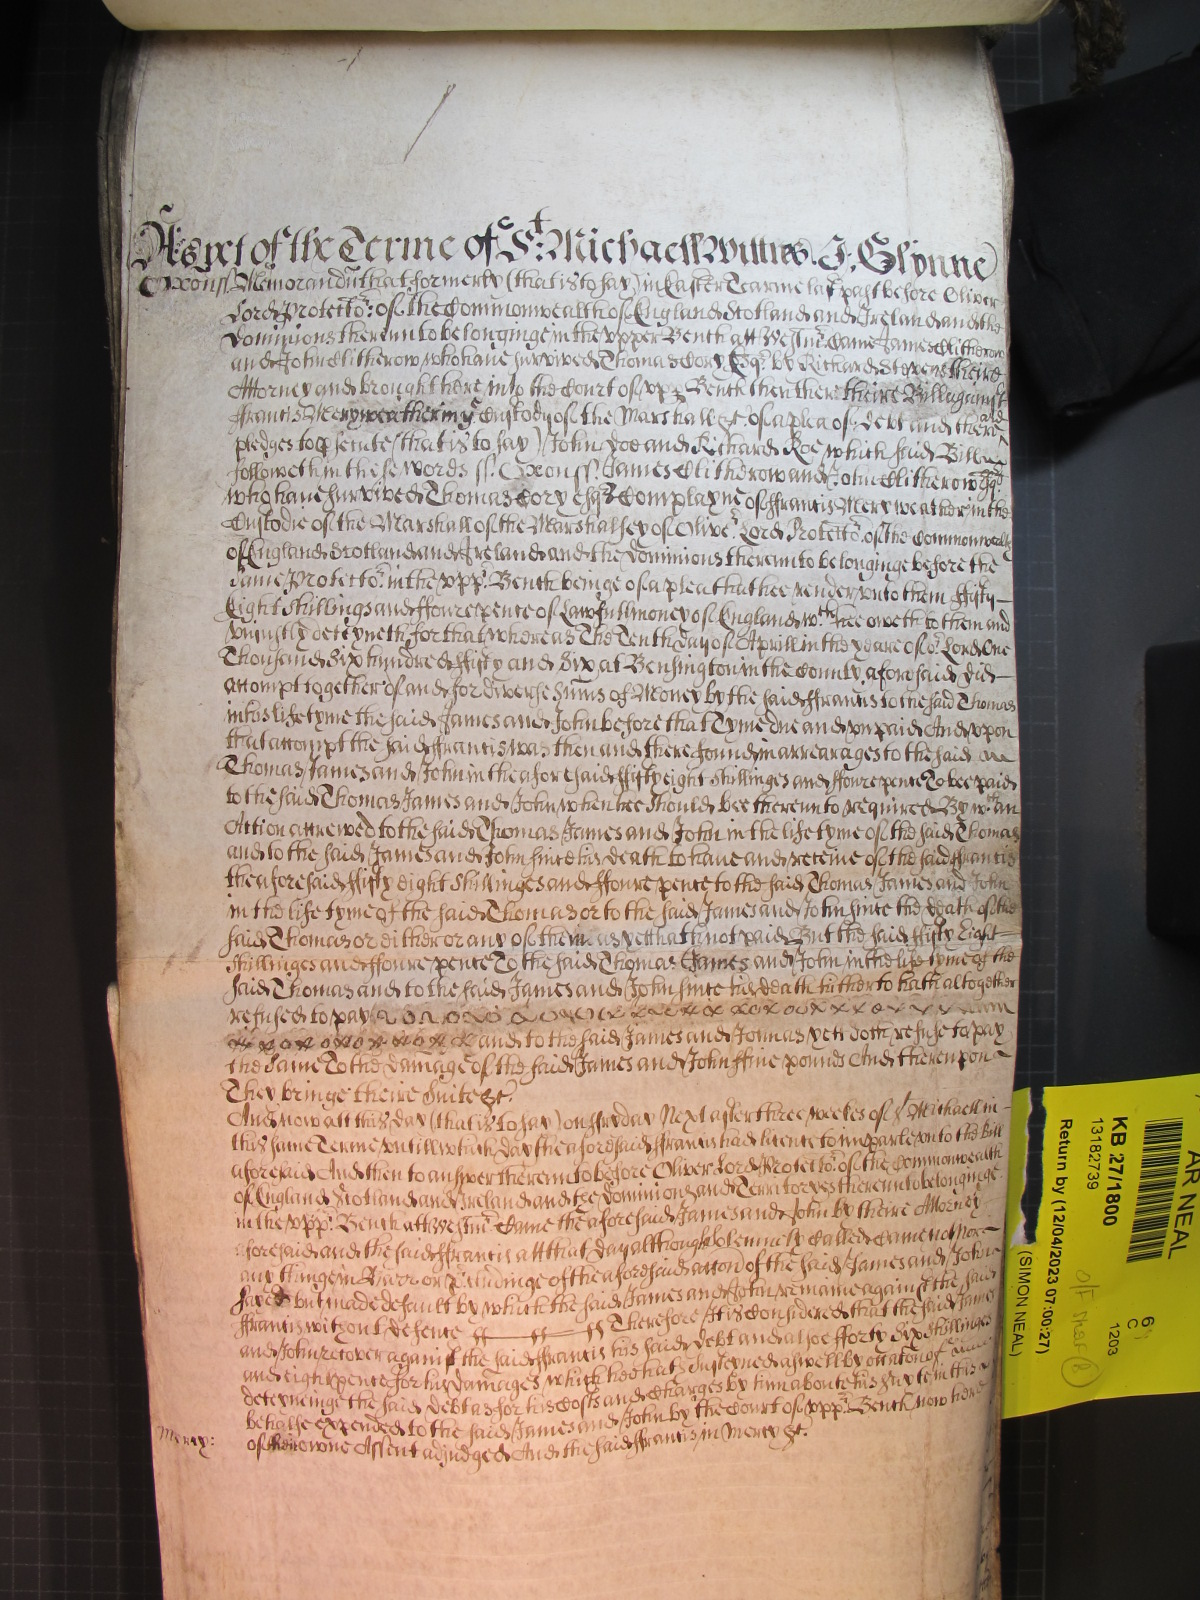 As yet of the Terme of St: Michaell Wittnes J: Glynne
Oxon ss Memorandum that formerly (that is to say) in Easter Tearme last past before Oliver
Lord Protector: of the Commonwealth of England Scotland and Ireland and the
Dominions thereunto belonginge in the upper Bench att Westmr: Came James Clitherow
and John Clitherow who have survived Thomas Cory Esqr: by Richard Stevens theire
Attorney and brought here into the Court of upper Bench then there theire Bill against
Francis Meryweather in ye Custody of the Marshall &c. of a plea of debt and there are
pledges to prosecute (that is to say) John Doe and Richard Roe which said Bill
followeth in these words ss. Oxon ss. James Clitherow and John Clitherow Esqrs
who have survived Thomas Cory Esqr Complayne of ffrancis Meryweather in the
Custodie of the Marshall of the Marshalsey of Oliver Lord Protector: of the Commonwealth
of England Scotland and Ireland and the Dominions thereunto belonginge before the
same Protector: in the upper: Bench beinge of a plea that hee render unto them ffifty
Eight shillings and ffoure pence of Lawfull money of England wch hee oweth to them and
uniustly deteyneth for that whereas The Tenth day of Aprill in the yeare of or: Lord One
Thousand Six hundred ffifty and Six at Bensington in the County aforesaid did
accompt together of and for diverse Sums of Money by the said ffrancis to the said Thomas
in his life tyme the said James and John before that Tyme due and unpaid And upon
that accompt the said ffrancis was then and there found in arrearages to the said
Thomas James and John in the aforesaid ffifty eight shillinges and ffoure pence To bee paid
to the said Thomas James and John when hee should bee thereunto required By wch an
Action accrewed to the said Thomas James and John in the life tyme of the said Thomas
and to the said James and John since his death to have and receive of the said ffrancis
the aforesaid ffifty eight Shillinges and ffoure pence to the said Thomas James and John
in the life tyme of the said Thomas or to the said James and John since the death of the
said Thomas or either or any of them as yett hath not paid But the said ffifty Eight
shillinges and ffoure pence To the said Thomas James and John in the life tyme of the
said Thomas and to the said James and John since his death hitherto hath altogether
refused to pay
and to the said James and John as yett doth refuse to pay
the same To the damage of the said James and John ffive pounds And thereupon
They bringe theire Suite &c.
And now att this day (that is to say) on ffryday Next after three weekes of St Michaell in
this same Terme untill which day the aforesaid ffrancis had licence to imparle unto the Bill
aforesaid And then to answer thereunto before Oliver Lord Protector: of the Commonwealth
of England Scotland and Ireland and the Dominions and Territoryes thereunto belonginge
in the upper: Bench att Westmr: Came the aforesaid James and John by theire Attorney
aforesaid and the said ffrancis att that day although Solemnely Called Came not Nor
any thinge in Barr or Precludinge of the aforesaid accion of the said James and John
sayed but made default by which the said James and John remaine against the said
ffrancis without defence Therefore It is Considered that the said James
and John recover against the said ffrancis his said debt and alsoe fforty Six shillinges
and eight pence for his damages which hee hath susteyned aswell by occacon of
deteyninge the said debt as for his Costs and Charges by him aboute his suyte in this
behalfe expended to the said James and John by the Court of upper: Bench now here
Mercy: of their owne Assent adjudged And the said ffrancis in Mercy &c.
AR NEAL
KB 27/1800
13182739
Return by (12/04/2023 07:00:27)
(SIMON NEAL)
C
1203